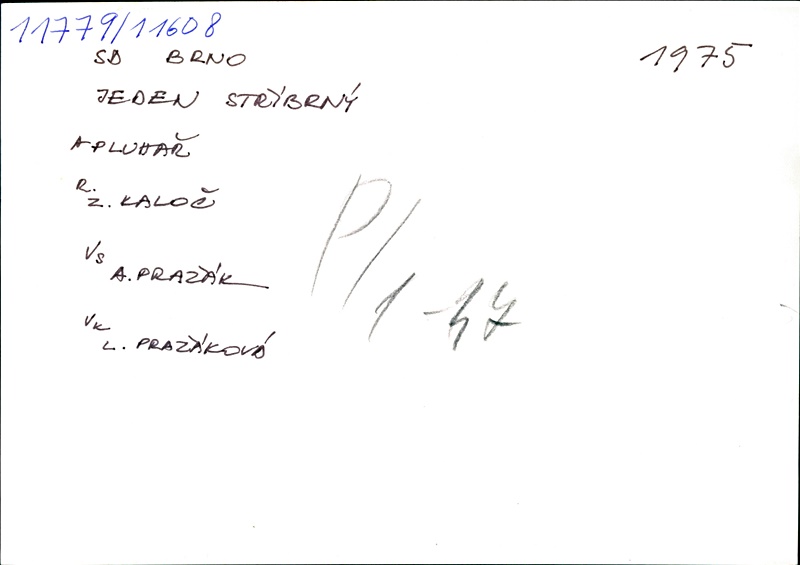 11779/11608
SD BRNO
1975
JEDEN STŘÍBRNÝ
A PLUHAŘ
R.
Z. KALOČ
VS
A. PRAŽÁK
VK
L. PRAŽÁKOVÁ
P/1-47